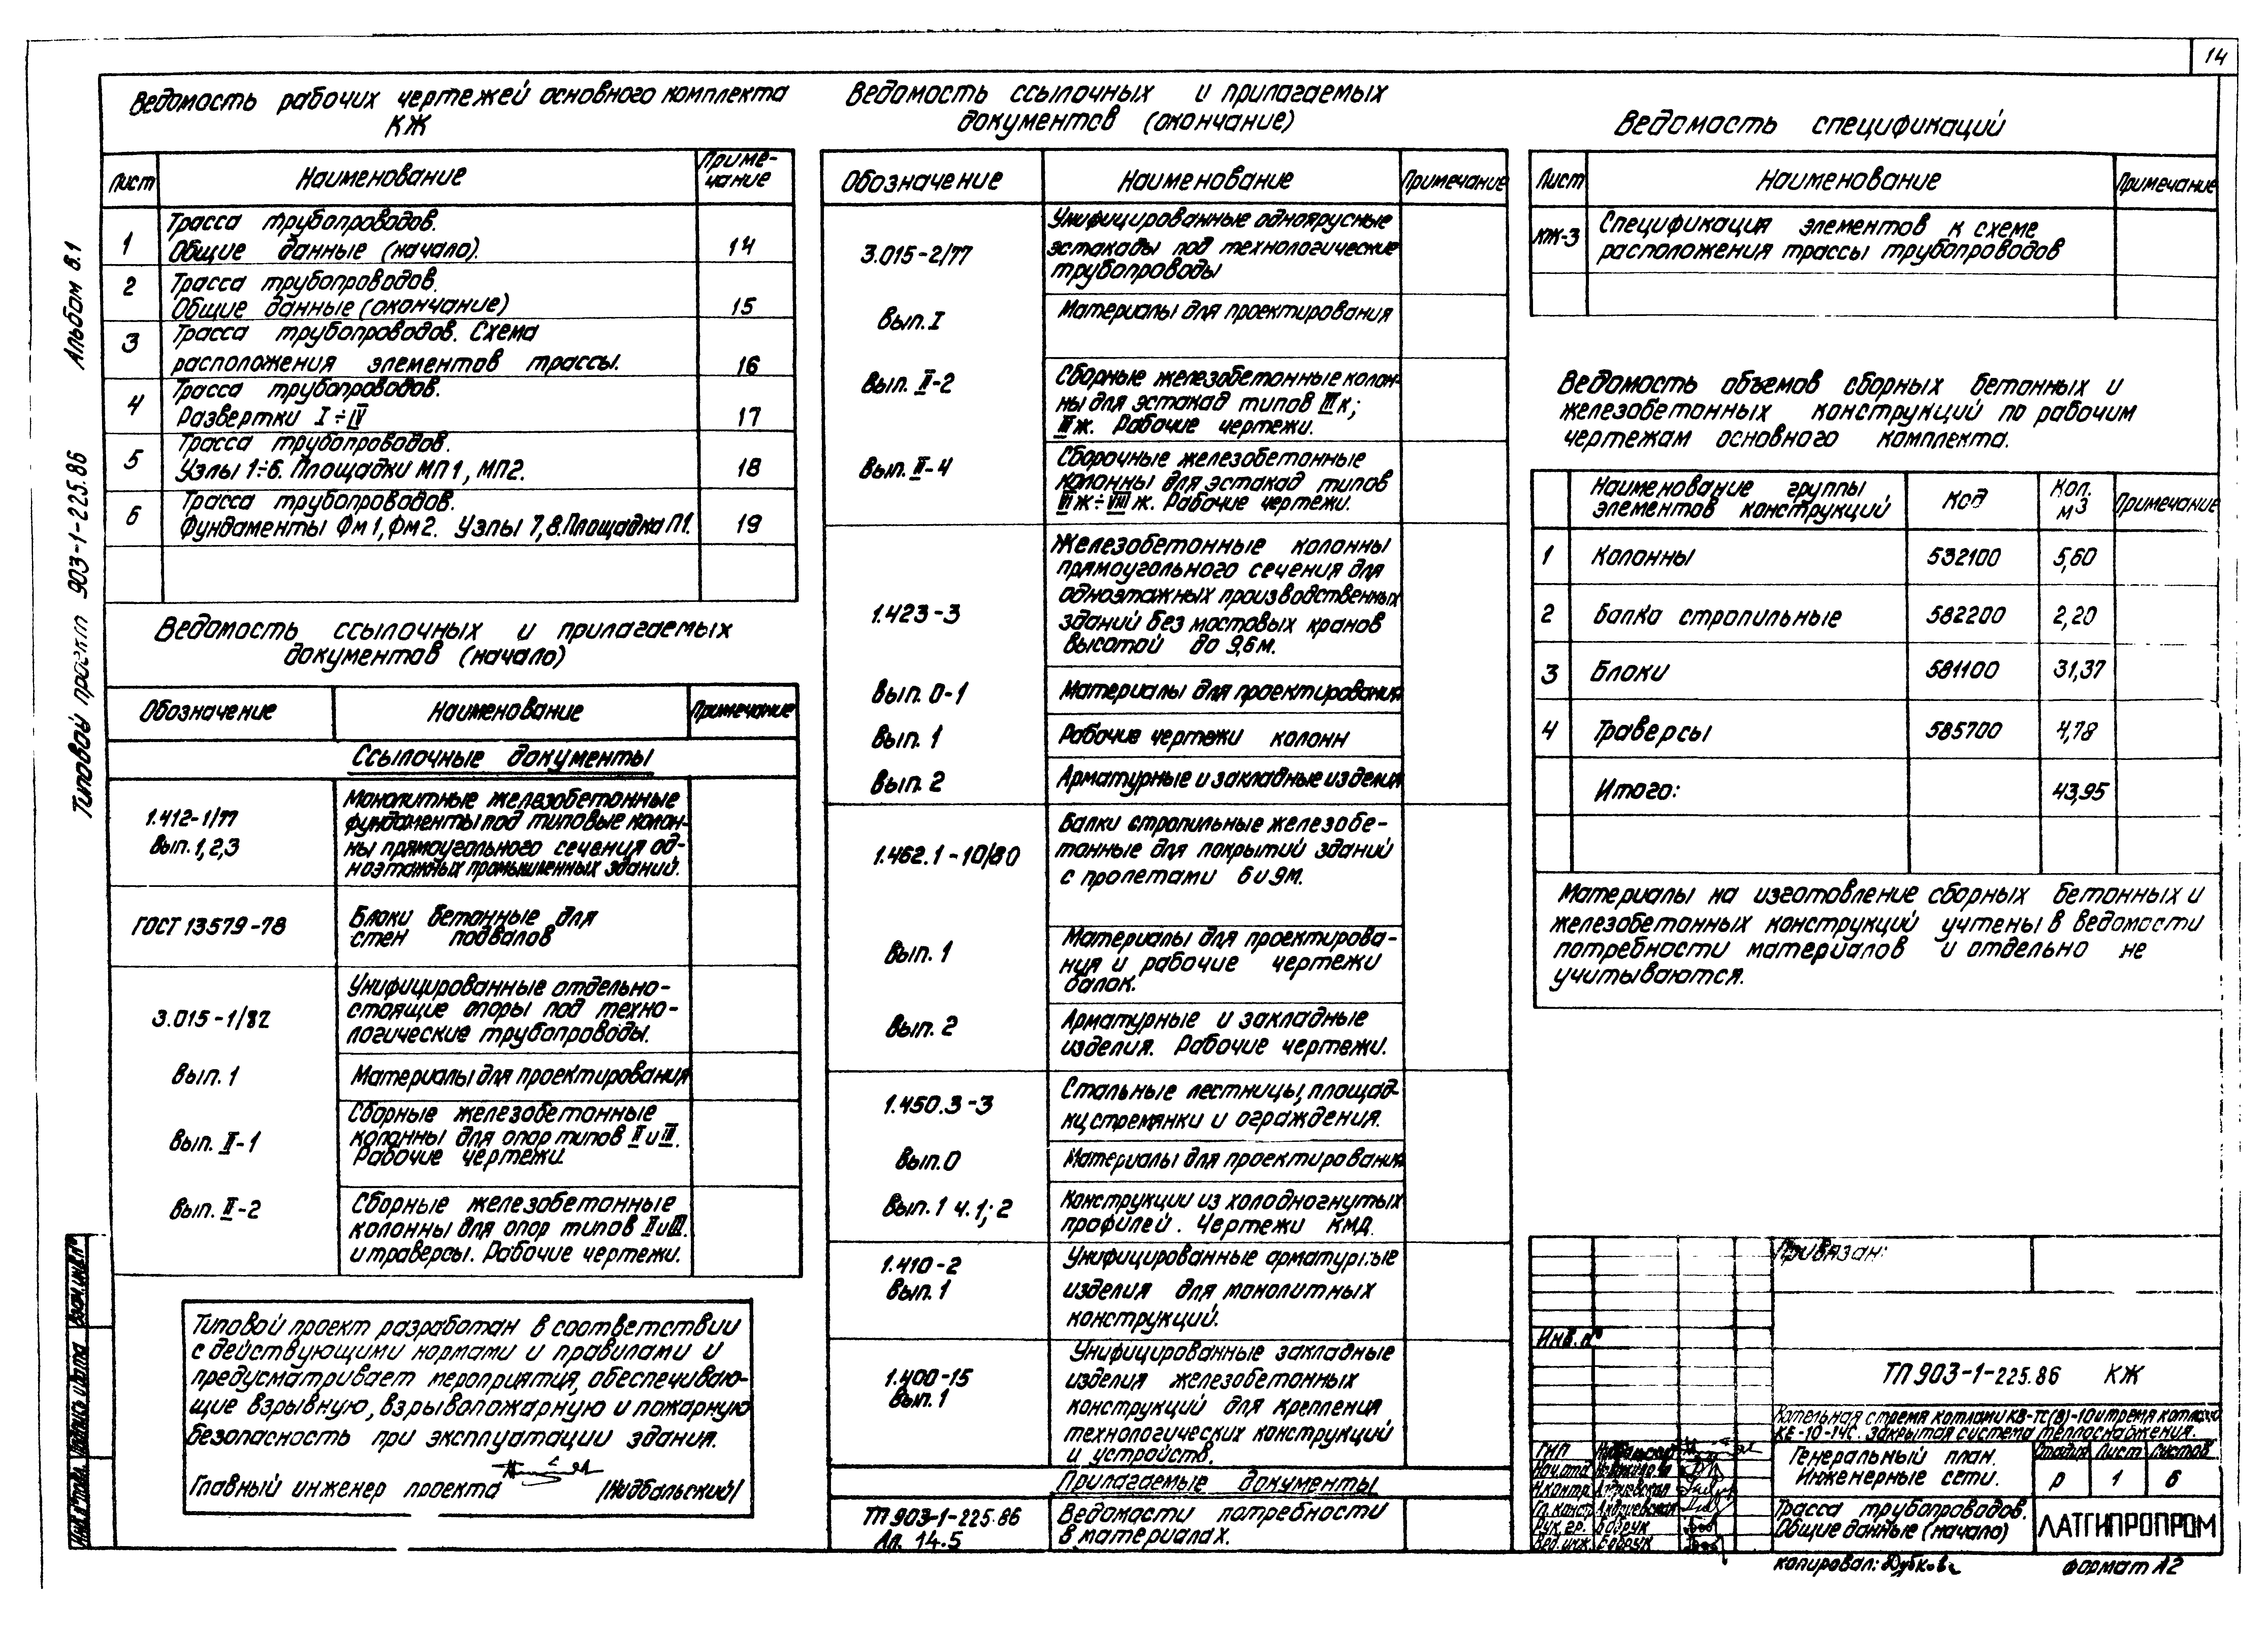 14
Альбом 8.1
Типовой проект 903-1-225.86
Ведомость рабочих чертежей основного комплекта
КЖ
Лист
Наименование
Приме-
чание
1
Трасса трубопроводов.
Общие данные (начало).
14
2
Трасса трубопроводов.
Общие данные (окончание)
15
3
Трасса трубопроводов. Схема
расположения элементов трассы.
16
4
Трасса трубопроводов.
Развертки I÷IV
17
5
Трасса трубопроводов.
Узлы 1÷6. Площадки МП1, МП2.
18
6
Трасса трубопроводов.
Фундаменты Фм1, Фм2. Узлы 7,8. Площадка П1.
19
Ведомость ссылочных и прилагаемых
документов (начало)
Обозначение
Наименование
Примечание
Ссылочные документы
1.412-1/77
Вып. 1,2,3
Монолитные железобетонные
фундаменты под типовые колон-
ны прямоугольного сечения од-
ноэтажных промышленных зданий.
ГОСТ 13579-78
Блоки бетонные для
стен подвалов
3.015-1/82
Унифицированные отдельно-
стоящие опоры под техно-
логические трубопроводы.
Вып. 1
Материалы для проектирования
Вып. II-1
Сборные железобетонные
колонны для опор типов II и III.
Рабочие чертежи.
Вып. II-2
Сборные железобетонные
колонны для опор типов II и III.
и траверсы. Рабочие чертежи.
Типовой проект разработан в соответствии
с действующими нормами и правилами и
предусматривает мероприятия, обеспечиваю-
щие взрывную, взрывопожарную и пожарную
безопасность при эксплуатации здания.
Главный инженер проекта /Нидбальский/
Ведомость ссылочных и прилагаемых
документов (окончание)
Обозначение
Наименование
Примечание
3.015-2/77
Унифицированные одноярусные
эстакады под технологические
трубопроводы
Вып. I
Материалы для проектирования
Вып. II-2
Сборные железобетонные колон-
ны для эстакад типов III к;
III ж. Рабочие чертежи.
Вып. II-4
Сборочные железобетонные
колонны для эстакад типов
ж÷VIII ж. Рабочие чертежи.
1.423-3
Железобетонные колонны
прямоугольного сечения для
одноэтажных производственных
зданий без мостовых кранов
высотой до 9,6м.
Вып. 0-1
Материалы для проектирования
Вып. 1
Рабочие чертежи колонн
Вып. 2
Арматурные и закладные изделия
1.462.1-10/80
Балки стропильные железобе-
тонные для покрытий зданий
с пролетами 6 и 9м.
Вып. 1
Материалы для проектирова-
ния и рабочие чертежи
балок.
Вып. 2
Арматурные и закладные
изделия. Рабочие чертежи.
1.450.3-3
Стальные лестницы, площад-
ки, стремянки и ограждения.
Вып. 0
Материалы для проектирования
Вып. 1 ч. 1; 2
Конструкции из холодногнутых
профилей. Чертежи КМД.
1.410-2
Вып. 1
Унифицированные арматурные
изделия для монолитных
конструкций.
1.400-15
Вып. 1
Унифицированные закладные
изделия железобетонных
конструкций для крепления
технологических конструкций
и устройств.
Прилагаемые документы
ТП 903-1-225.86
Ал. 14.5
Ведомости потребности
в материалах.
Ведомость спецификаций
Лист
Наименование
Примечание
КЖ-3
Спецификация элементов к схеме
расположения трассы трубопроводов
Ведомость объемов сборных бетонных и
железобетонных конструкций по рабочим
чертежам основного комплекта.
Наименование группы
элементов конструкций
Код
Кол.
м3
Примечание
1
Колонны
532100
5,60
2
Балка стропильные
582200
2,20
3
Блоки
581100
31,37
4
Траверсы
585700
4,78
Итого:
43,95
Материалы на изготовление сборных бетонных и
железобетонных конструкций учтены в ведомости
потребности материалов и отдельно не
учитываются.
Привязан:
Инв. №
ТП 903-1-225.86 КЖ
Котельная с тремя котлами КВ-ТС(В)-10 и тремя котлами
КЕ-10-14С. Закрытая система теплоснабжения.
ГИП
Нач. отд.
Н. контр. Андриевская
Гл. констр. Андриевская
Рук. гр. Бобрук
Вед. инж. Бобрук
Генеральный план.
Инженерные сети.
Стадия Лист Листов
Р 1 6
Трасса трубопроводов.
Общие данные (начало)
ЛАТГИПРОПРОМ
Копировал: Дубкова
Формат А2
Взам. инв. №
Подпись и дата
Инв. № подл.